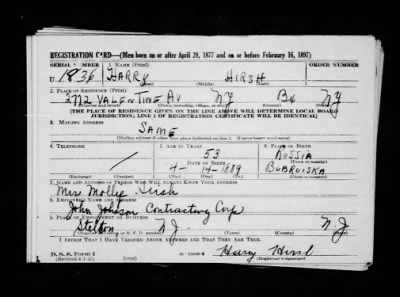 REGISTRATION CARD—(Men born on or after April 28, 1877 and on or before February 16, 1897)
SERIAL NUMBER 1. NAME (Print) ORDER NUMBER
U 1836 HARRY HIRSH
(First) (Middle) (Last)
2. PLACE OF RESIDENCE (Print)
VALENTINE AV NY Bx NY
(Number and street) (Town, township, village, or city) (County) (State)
[THE PLACE OF RESIDENCE GIVEN ON THE LINE ABOVE WILL DETERMINE LOCAL BOARD
JURISDICTION; LINE 2 OF REGISTRATION CERTIFICATE WILL BE IDENTICAL]
3. MAILING ADDRESS
SAME
[Mailing address if other than place indicated on line 2. If same insert word same]
4. TELEPHONE 5. AGE IN YEARS 6. PLACE OF BIRTH
53 RUSSIA
DATE OF BIRTH
4 - 14 - 1889 BOBROISKA
7. NAME AND ADDRESS OF PERSON WHO WILL ALWAYS KNOW YOUR ADDRESS
Mrs Mollie Hirsh
8. EMPLOYER'S NAME AND ADDRESS
John Johnson Contracting Corp
9. PLACE OF EMPLOYMENT OR BUSINESS
Stelton N.J. N.J.
I AFFIRM THAT I HAVE VERIFIED ABOVE ANSWERS AND THAT THEY ARE TRUE.
D. S. S. Form 1
(Revised 4-1-42) Harry Hirsh
(Registrant's signature)